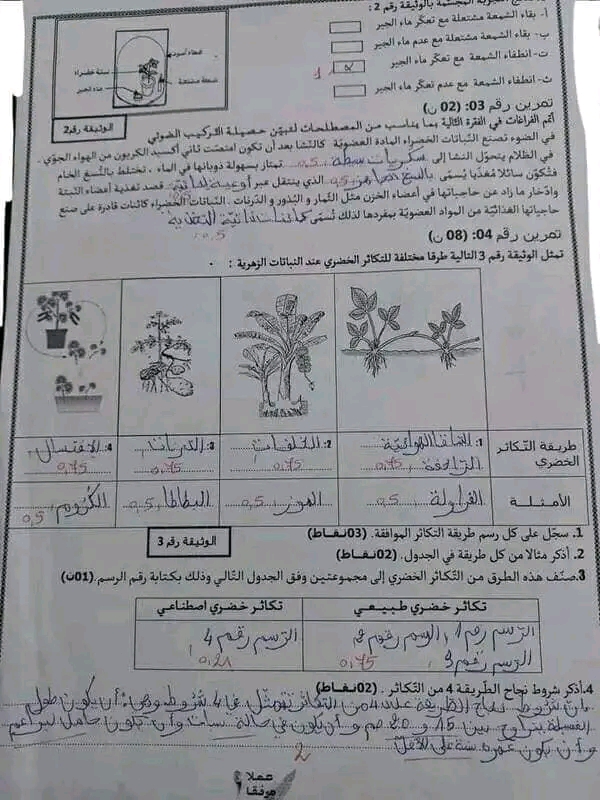 التجربة المجسّمة بالوثيقة رقم 2 :
أ- بقاء الشمعة مشتعلة مع تعكّر ماء الجير
ب- بقاء الشمعة مشتعلة مع عدم تعكّر ماء الجير
ت- انطفاء الشمعة مع تعكّر ماء الجير
x
1
ث- انطفاء الشمعة مع عدم تعكّر ماء الجير
غطاء أسود
نبتة خضراء
شمعة مشتعلة
ماء الجير
الوثيقة رقم2
تمرين رقم 03: (02 ن)
أتمّ الفراغات في الفقرة التّالية بما يناسب من المصطلحات لتبيّن حصيلة التركيب الضوئي
في الضوء تصنع النّباتات الخضراء المادة العضويّة كالنّشا بعد أن تكون امتصّت ثاني أكسيد الكربون من الهواء الجوّي.
في الظلام يتحوّل النشا إلى سكريات بسيطة 0,5 تمتاز بسهولة ذوبانها في الماء. تختلط بالنّسغ الخام
فتكوّن سائلا مُغذّيا يُسمّى بالنسغ الجاهز 0,5 الذي ينتقل عبر أوعية لحائية قصد تغذية أعضاء النّبتة
وادّخار ما زاد عن حاجياتها في أعضاء الخزن مثل الثّمار و البُذور و الدّرنات. النّباتات الخضراء كائنات قادرة على صنع
حاجياتها الغذائيّة من المواد العضويّة بمفردها لذلك تُسمّى كائنات ذاتيّة التغذية
0,5
تمرين رقم 04: (08 ن)
تمثل الوثيقة رقم 3 التالية طرقا مختلفة للتكاثر الخضري عند النباتات الزهرية :
طريقة التّكاثر الخضري
1: الساق الهوائيّة الزّاحفة 0,75
2: الخلفات 0,75
3: الدرنات 0,75
4: الافتسال 0,75
الأمثلة
الفراولة 0,5
الموز 0,5
البطاطا 0,5
الكروم 0,5
1. سجّل على كل رسم طريقة التكاثر الموافقة. (03نقاط)
الوثيقة رقم 3
2. أذكر مثالا من كل طريقة في الجدول. (02نقاط)
3.صنّف هذه الطرق من التّكاثر الخضري إلى مجموعتين وفق الجدول التّالي وذلك بكتابة رقم الرسم. (01ن)
تكاثر خضري طبيعي
تكاثر خضري اصطناعي
الرّسم رقم 1، الرسم رقم 2
الرّسم رقم 3، 0,75
الرّسم رقم 4
0,25
4.أذكر شروط نجاح الطّريقة 4 من التّكاثر. (02نقاط)
إنّ شروط نجاح الطريقة عدد 4 من التكاثر تتمثّل في 4 شروط وهي: أن يكون طول
الفسيلة يتراوح بين 15 و 20 صم و أن يكون في حالة سبات وأن يكون حامل لبراعم
و أن يكون عمره سنة على الأقل.
2
عملا
موفقا